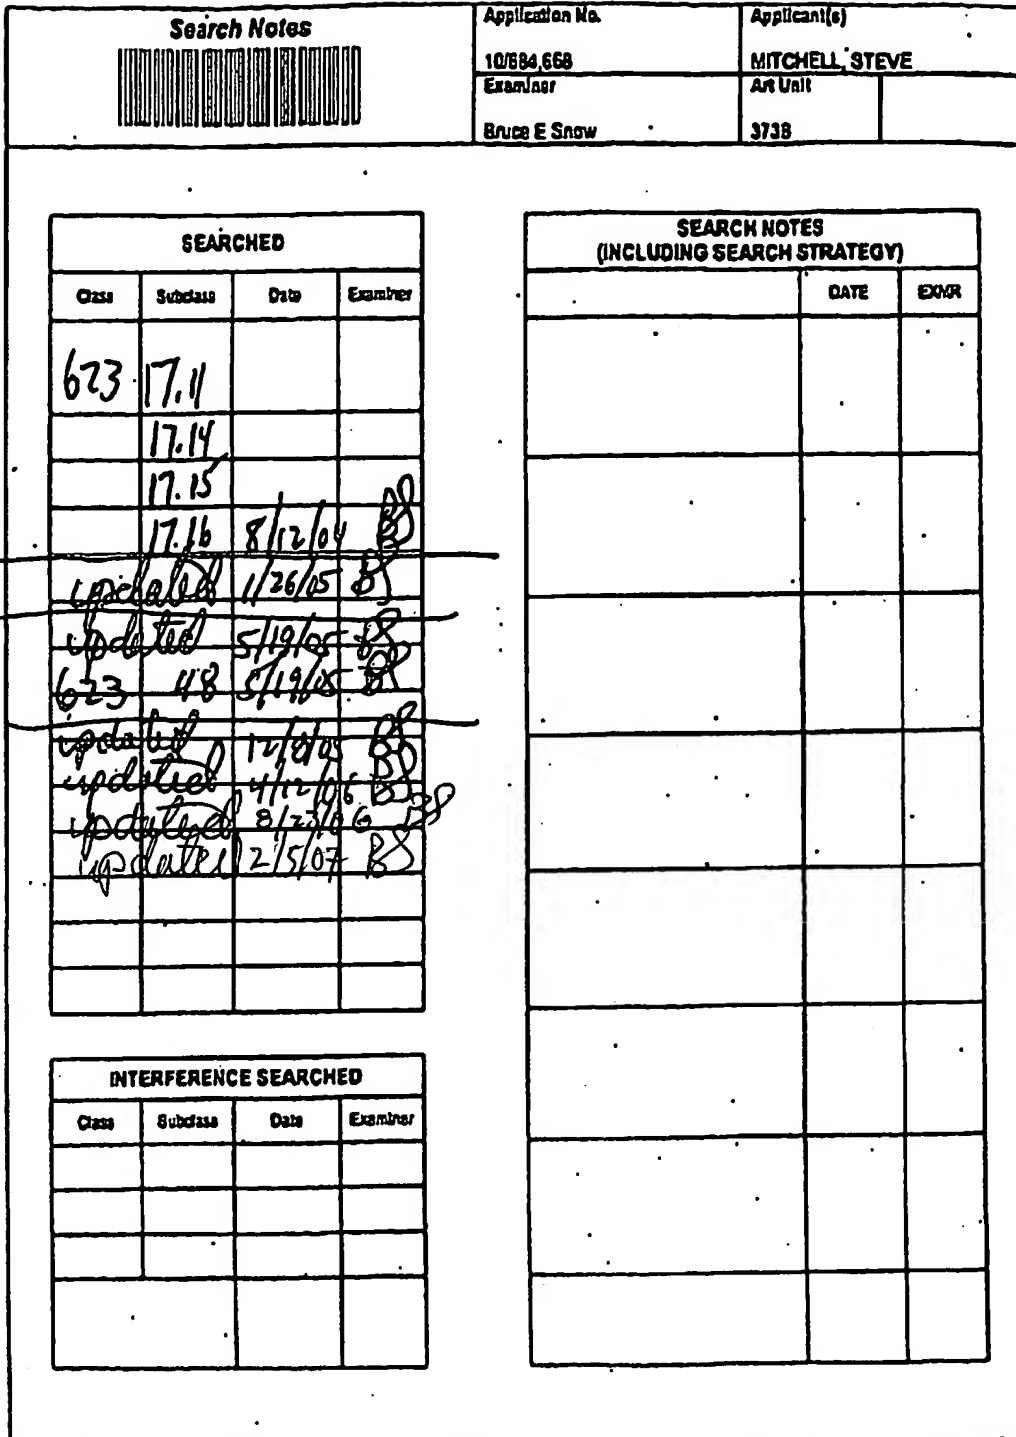 Search Notes
Application No.
10/684,668
Applicant(s)
MITCHELL, STEVE
Examiner
Bruce E Snow
Art Unit
3738
SEARCHED
Class Subclass Date Examiner
623 17.11
17.14
17.15
17.16 8/12/04 BS
updated 1/26/05 BS
updated 5/19/05 BS
623 48 5/19/05 BS
updated 12/8/05 BS
updated 4/12/06 BS
updated 8/23/06 BS
updated 2/5/07 BS
INTERFERENCE SEARCHED
Class Subclass Date Examiner
SEARCH NOTES
(INCLUDING SEARCH STRATEGY)
DATE EXMR